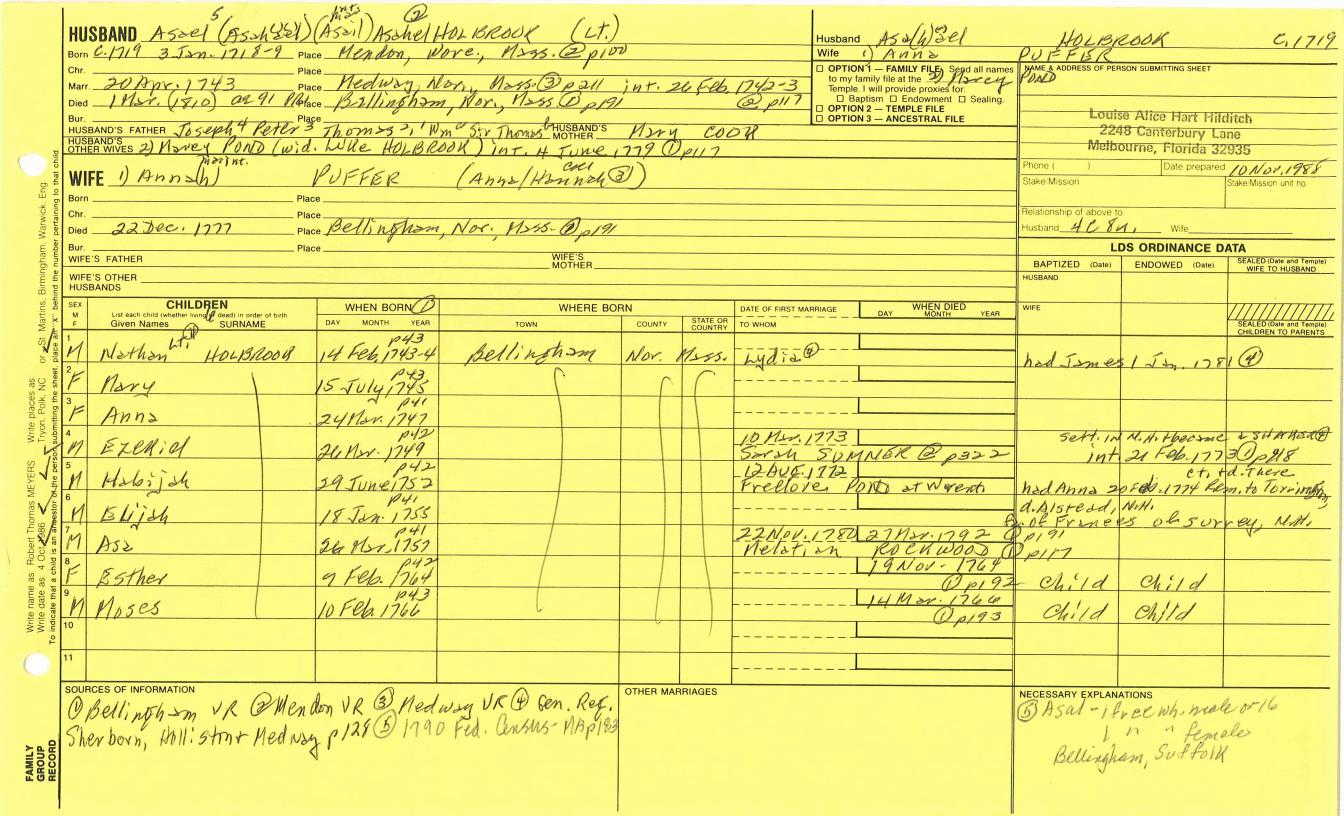 HUSBAND Asael 5 (Asahel) (Asail) Asahel HOLBROOK (Lt.) ②
Born C.1719 3 Jan. 1718-9 Place Mendon, Worc., Mass. ② p100
Chr. Place
Marr 20 Apr. 1743 Place Medway, Nor., Mass. ③ p211 int. 26 Feb. 1742-3
Died 1 Mar. (1810) ae 91 Place Bellingham, Nor., Mass ① p191 ② p117
Bur. Place
HUSBAND'S FATHER Joseph 4 Peter 3 Thomas 2, 1 Wm Sir Thomas HUSBAND'S MOTHER Mary COOK
HUSBAND'S OTHER WIVES 2) Marcy POND (wid. Luke HOLBROOK) int. 4 June 1779 ① p117
WIFE 1) Anna(h) PUFFER (Anna/Hannah ③)
Born Place
Chr. Place
Died 22 Dec. 1777 Place Bellingham, Nor., Mass. ① p191
Bur. Place
WIFE'S FATHER WIFE'S MOTHER
WIFE'S OTHER HUSBANDS
Husband Asa(h)ael HOLBROOK C.1719
Wife 1) Anna PUFFER
2) Marcy POND
☐ OPTION 1 — FAMILY FILE Send all names
to my family file at the
Temple. I will provide proxies for
☐ Baptism ☐ Endowment ☐ Sealing.
☐ OPTION 2 — TEMPLE FILE
☐ OPTION 3 — ANCESTRAL FILE
NAME & ADDRESS OF PERSON SUBMITTING SHEET
Louise Alice Hart Hilditch
2248 Canterbury Lane
Melbourne, Florida 32935
Phone ( ) Date prepared 10 Nov. 1988
Stake/Mission Stake/Mission unit no.
Relationship of above to
Husband 4C 8n. Wife
LDS ORDINANCE DATA
BAPTIZED (Date) ENDOWED (Date) SEALED (Date and Temple) WIFE TO HUSBAND
HUSBAND
WIFE
SEALED (Date and Temple) CHILDREN TO PARENTS
SEX M F CHILDREN WHEN BORN ① WHERE BORN DATE OF FIRST MARRIAGE WHEN DIED
List each child (whether living or dead) in order of birth
Given Names SURNAME DAY MONTH YEAR TOWN COUNTY STATE OR COUNTRY TO WHOM DAY MONTH YEAR
1 M Nathan Lt. HOLBROOK 14 Feb. 1743-4 p43 Bellingham Nor. Mass. Lydia ④ had James 1 Jan. 1781 ④
2 F Mary 15 July 1745 p43
3 F Anna 24 Mar. 1747 p41
4 M Ezekiel 26 Mar. 1749 p42 10 Mar. 1773 Sarah SUMNER ② p322 sett. in N.H. & became a SHAKER int. 21 Feb. 1773 ① p118
5 M Habijah 29 June 1752 p42 12 Aug. 1772 Freelove POND at Wrent. had Anna 20 Feb. 1774 Rem. to Torrington, ct. & d. There
6 M Elijah 18 Jan. 1755 p41 d. Alstead, N.H. f. of Frances of Surrey, N.H.
7 M Asa 26 Mar. 1757 p41 22 Nov. 1780 Melatiah ROCKWOOD 27 Mar. 1792 ① p191 ① p117
8 F Esther 9 Feb. 1764 p42 19 Nov. 1764 ① p192 Child Child
9 M Moses 10 Feb. 1766 p43 14 Mar. 1766 ① p193 Child Child
10
11
SOURCES OF INFORMATION
① Bellingham VR ② Mendon VR ③ Medway VR ④ Gen. Reg.
Sherborn, Holliston & Medway p128 ⑤ 1790 Fed. Census-MA p183
OTHER MARRIAGES
NECESSARY EXPLANATIONS
⑤ Asal - 1 free wh. male or 16
1 " " female
Bellingham, Suffolk
Write name as: Robert Thomas MEYERS Write places as Tryon, Polk, NC or St. Martins, Birmingham, Warwick, Eng.
Write date as: 4 Oct. 1986
To indicate that a child is an ancestor of the person submitting the sheet, place an "x" behind the number pertaining to that child
FAMILY GROUP RECORD